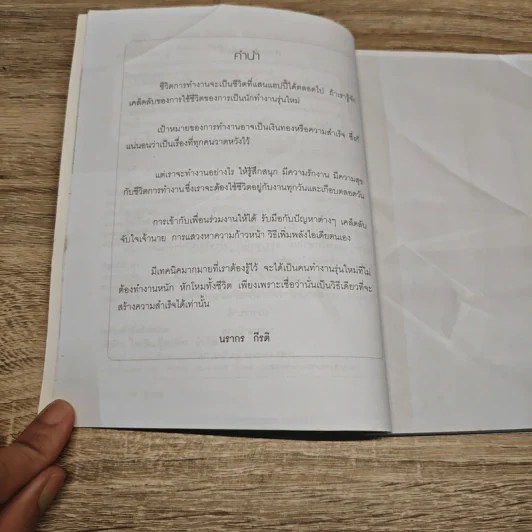 คำนำ
ชีวิตการทำงานจะเป็นชีวิตที่แสนแฮปปี้ได้ตลอดไป ถ้าเรารู้จัก
เคล็ดลับของการใช้ชีวิตของการเป็นนักทำงานรุ่นใหม่
เป้าหมายของการทำงานอาจเป็นเงินทองหรือความสำเร็จ ซึ่งก็
แน่นอนว่าเป็นเรื่องที่ทุกคนวาดหวังไว้
แต่เราจะทำงานอย่างไร ให้รู้สึกสนุก มีความรักงาน มีความสุข
กับชีวิตการทำงานซึ่งเราจะต้องใช้ชีวิตอยู่กับงานทุกวันและเกือบตลอดวัน
การเข้ากับเพื่อนร่วมงานให้ได้ รับมือกับปัญหาต่างๆ เคล็ดลับ
จับใจเจ้านาย การแสวงหาความก้าวหน้า วิธีเพิ่มพลังไอเดียตนเอง
มีเทคนิคมากมายที่เราต้องรู้ไว้ จะได้เป็นคนทำงานรุ่นใหม่ที่ไม่
ต้องทำงานหนัก หักโหมทั้งชีวิต เพียงเพราะเชื่อว่านั่นเป็นวิธีเดียวที่จะ
สร้างความสำเร็จได้เท่านั้น
นรากร กีรติ